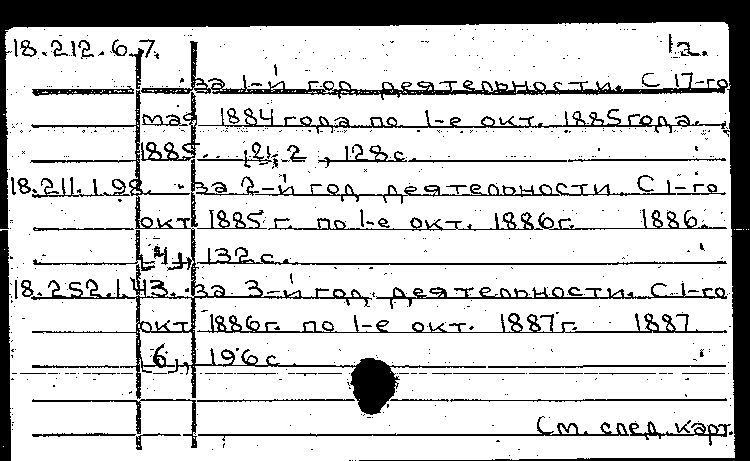 18.212.6.7. 1а.
за 1-й год деятельности. С 17-го
мая 1884 года по 1-е окт. 1885 года.
1885. 2, 128 с.
18.211.1.98. за 2-й год деятельности. С 1-го
окт. 1885 г. по 1-е окт. 1886 г. 1886.
[4], 132 с.
18.252.1.43. за 3-й год деятельности. С 1-го
окт. 1886 г. по 1-е окт. 1887 г. 1887.
[6], 196 с.
См. след. карт.